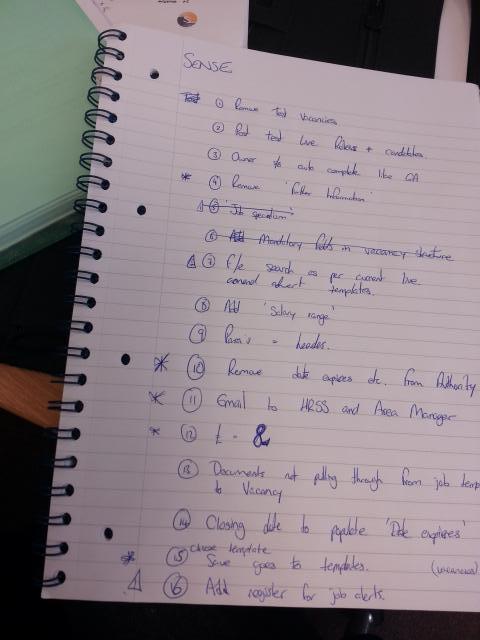 SENSE
① Remove Test Vacancies
② Post test live Roles + candidates.
③ Owner to auto complete like CA
* ④ Remove 'Further Information'
⑤ 'Job specialism'
⑥ Add Mandatory fields in vacancy structure
⑦ F/e search as per current live.
amend advert templates.
⑧ Add 'Salary range'
⑨ = header.
* ⑩ Remove date expires etc. from Authority
* ⑪ Email to HRSS and Area Manager
* ⑫ £ - &
⑬ Documents not pulling through from job temp
to Vacancy
⑭ Closing date to populate 'Date expires'
* ⑮ choose template
Save goes to templates.
⑯ Add register for job alerts.